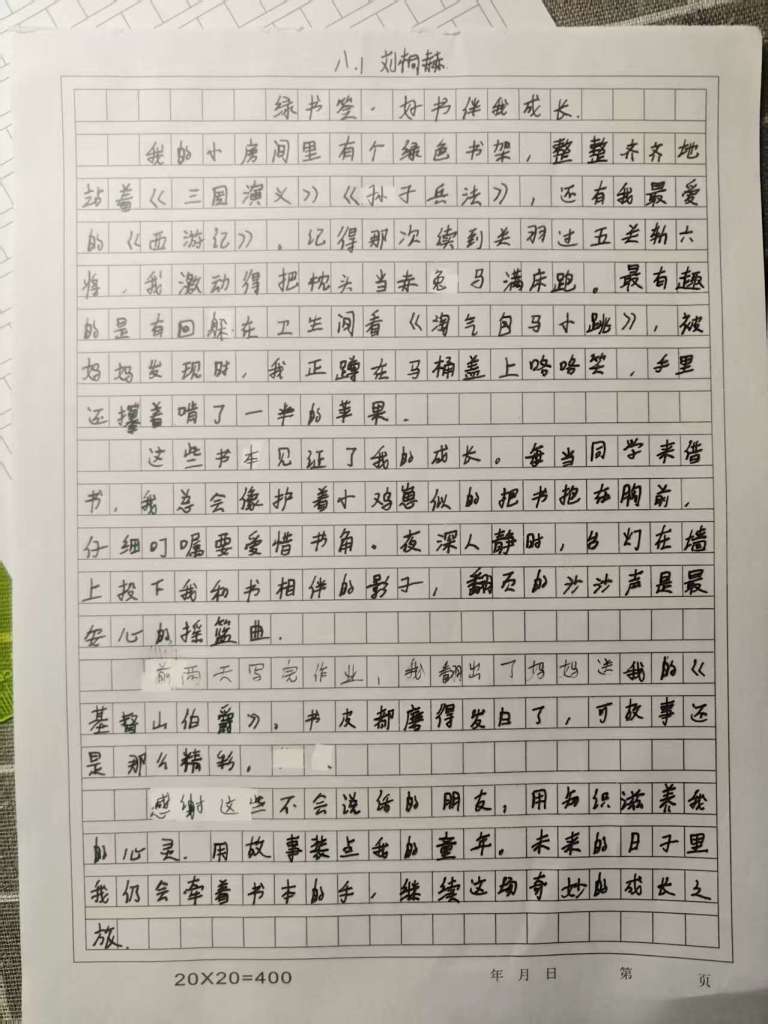 八.1 刘桐赫
绿书签·好书伴我成长.
我的小房间里有个绿色书架，整整齐齐地
站着《三国演义》《孙子兵法》，还有我最爱
的《西游记》。记得那次续到关羽过五关斩六
将，我激动得把枕头当赤兔马满床跑。最有趣
的是有回躲在卫生间看《淘气包马小跳》，被
妈妈发现时，我正蹲在马桶盖上咯咯笑，手里
还攥着啃了一半的苹果.
这些书本见证了我的成长。每当同学来借
书，我总会像护着小鸡崽似的把书抱在胸前，
仔细叮嘱要爱惜书角。夜深人静时，台灯在墙
上投下我和书相伴的影子，翻页的沙沙声是最
安心的摇篮曲.
前两天写完作业，我翻出了妈妈送我的《
基督山伯爵》。书皮都磨得发白了，可故事还
是那么精彩。
感谢这些不会说话的朋友，用知识滋养我
的心灵.用故事装点我的童年。未来的日子里
我仍会牵着书本的手，继续这场奇妙的成长之
旅.
20X20=400 年 月 日 第 页